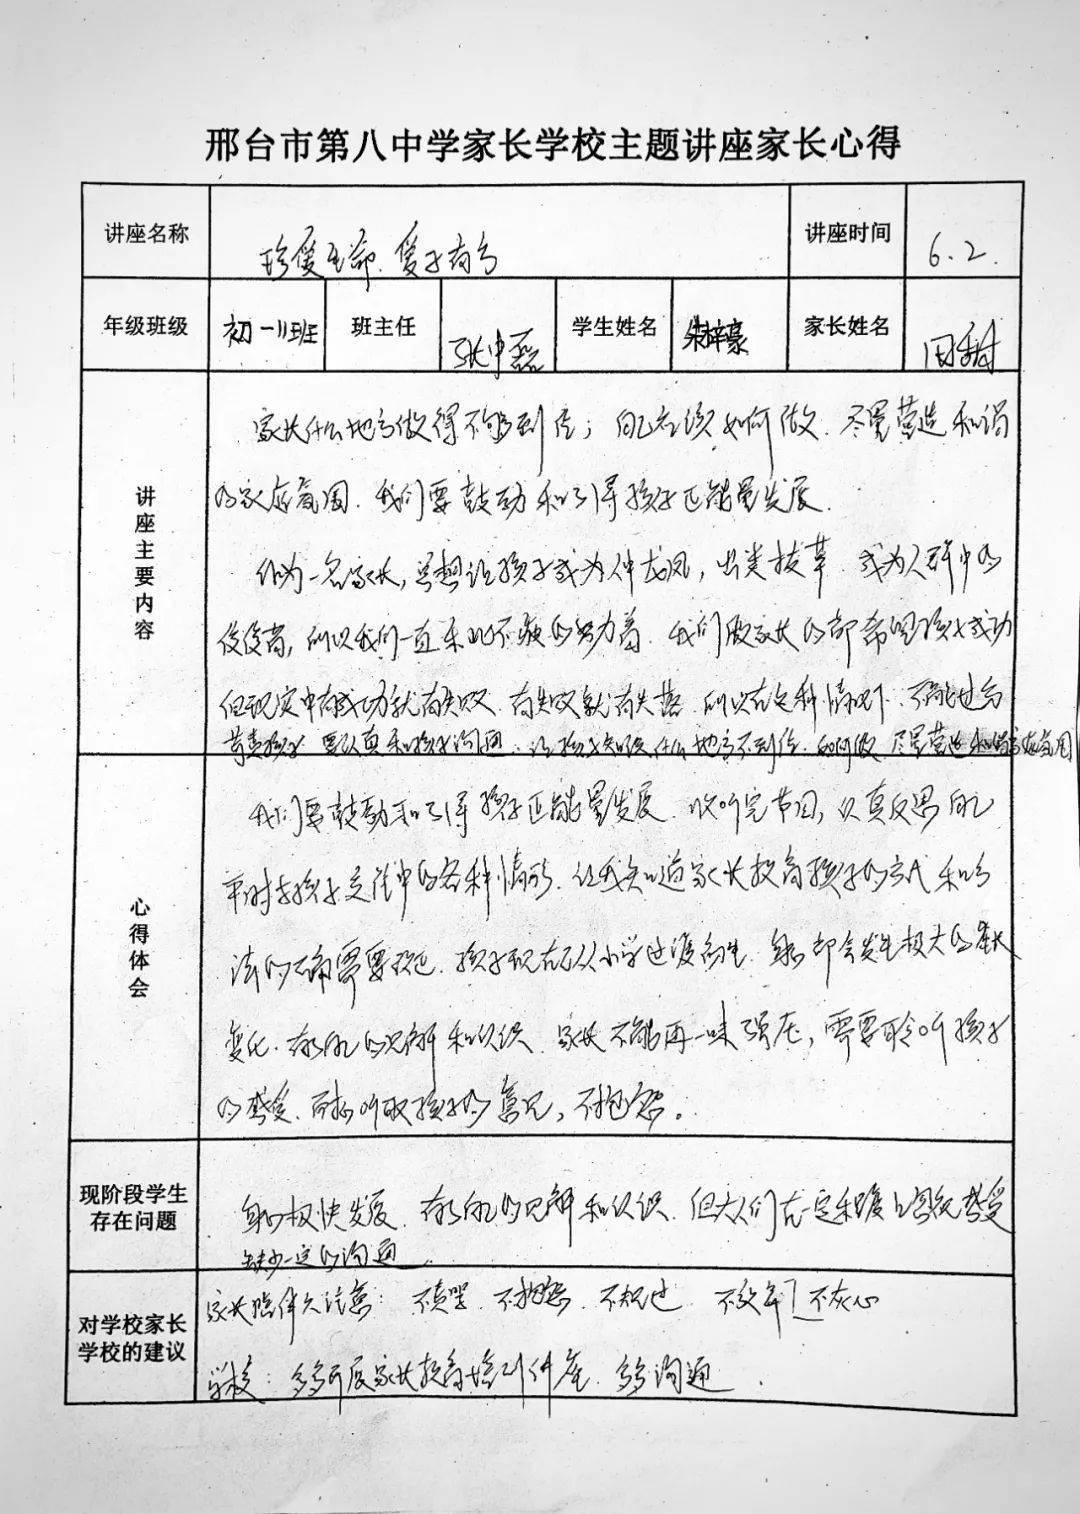 邢台市第八中学家长学校主题讲座家长心得
讲座名称 珍爱生命 爱子有方 讲座时间 6.2.
年级班级 初一11班 班主任 张中磊 学生姓名 朱梓豪 家长姓名 田
讲座主要内容
家长什么地方做得不够到位；自己应该如何做．尽量营造和谐
的家庭氛围．我们要鼓励和引导孩子正能量发展．
作为一名家长，总想让孩子成为人中龙凤，出类拔萃．成为人群中的
佼佼者，所以我们一直乐此不疲的努力着．我们做家长的都希望孩子成功
但现实中有成功就有失败．有失败就有失落．所以在这种情况下．不能过分
苛责孩子 要认真和孩子沟通．让孩子知道什么地方不到位．如何做 尽量营造和谐家庭氛围
心得体会
我们要鼓励和引导孩子正能量发展．收听完节目，认真反思自己
平时与孩子交往中的各种情形．让我知道家长教育孩子的方式和方
法的确需要改进．孩子现在从小学过渡初生．身心都会发生极大的
变化．有自己的见解和认识．家长不能再一味强压，需要聆听孩子
的感受．听取孩子的意见，不抱怨。
现阶段学生存在问题
身心极快发展．有自己的见解和认识．但大人们在一定程度上忽视感受
缺少一定的沟通
对学校家长学校的建议
家长陪伴久注意：不责骂．不抱怨．不灰心
学校：多多开展家长教育培训讲座．多多沟通．